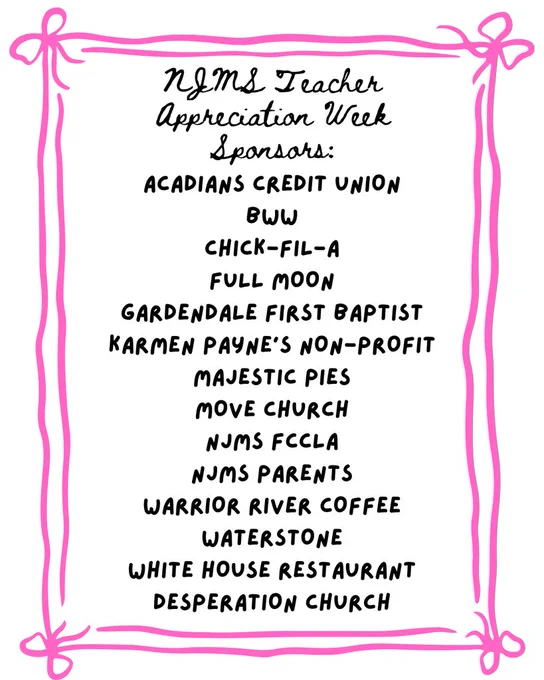 NJMS Teacher
Appreciation Week
Sponsors:
ACADIANS CREDIT UNION
BWW
CHICK-FIL-A
FULL MOON
GARDENDALE FIRST BAPTIST
KARMEN PAYNE'S NON-PROFIT
MAJESTIC PIES
MOVE CHURCH
NJMS FCCLA
NJMS PARENTS
WARRIOR RIVER COFFEE
WATERSTONE
WHITE HOUSE RESTAURANT
DESPERATION CHURCH